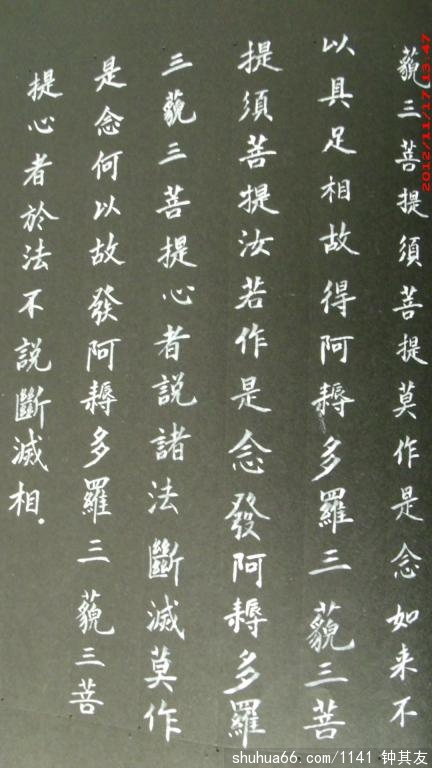 藐三菩提須菩提莫作是念如来不
以具足相故得阿耨多羅三藐三菩
提須菩提汝若作是念發阿耨多羅
三藐三菩提心者説諸法斷滅莫作
是念何以故發阿耨多羅三藐三菩
提心者於法不説斷滅相.
2012/11/17 13:47
shuhua66.com/1141 钟其友